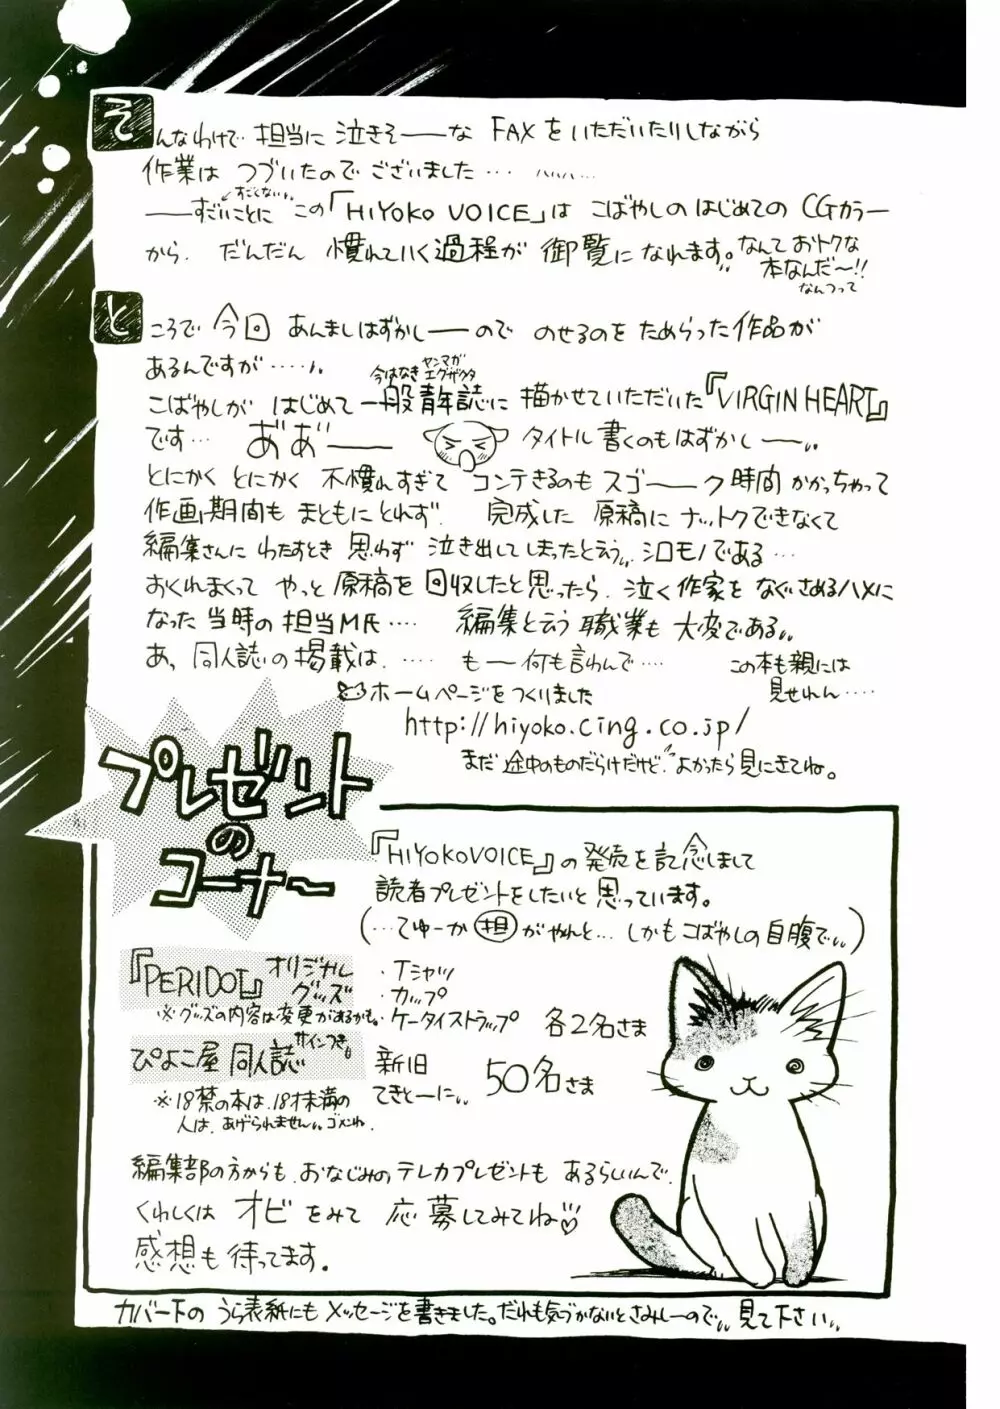 そんなわけで 担当に 泣きそーーな FAXを いただいたりしながら
作業は つづいたのでございました… ……
すごくない
ーーすごいことに この「HIYOKO VOICE」は こばやしの はじめての CGカラー
から、だんだん 慣れていく過程が 御覧になれます。なんて おトクな
本なんだ〜!!
なんつって
ところで 今回 あんましはずかしーーので のせるのを ためらった作品が
あるんですが……
今はなき ヤンマガ エグザクタ
こばやしが はじめて 一般青年誌に 描かせていただいた『VIRGIN HEART』
です… あ゛あ゛ーー タイトル書くのもはずかしーー
とにかく とにかく 不慣れすぎて コンテきるのも スゴーーク 時間 かかっちゃって
作画期間も まともに とれず、 完成した 原稿に ナットクできなくて
編集さんに わたすとき 思わず 泣き出してしまったとゆう シロモノである…
おくれまくって やっと 原稿を 回収したと思ったら、泣く作家を なぐさめるハメに
なった 当時の 担当M氏…. 編集とゆう 職業も 大変である
あ、同人誌の掲載は、…… もー何も言わんで…. この本も親には
見せれん….
ホームページをつくりました
http://hiyoko.cing.co.jp/
まだ 途中のものだらけだけど、よかったら見にきてね。
プレゼント
の
コーナー
『HIYOKO VOICE』の発売を記念しまして
読者プレゼントをしたいと思っています。
(…てゆーか 担 がやれと… しかも こばやしの自腹で)
『PERIDOT』オリジナル
グッズ
※グッズの内容は変更があるかも。
・Tシャツ
・カップ
・ケータイストラップ 各2名さま
ぴよこ屋 同人誌 サインつき
新旧
てきとーに 50名さま
※18禁の本は、18才未満の
人は、あげられません。ゴメンね.
編集部の方からも、おなじみの テレカプレゼントも あるらしいんで、
くわしくは オビをみて 応募してみてね♡
感想も待ってます。
カバー下の うら表紙にも メッセージを書きました。だれも気づかないとさみしーので 見て下さい